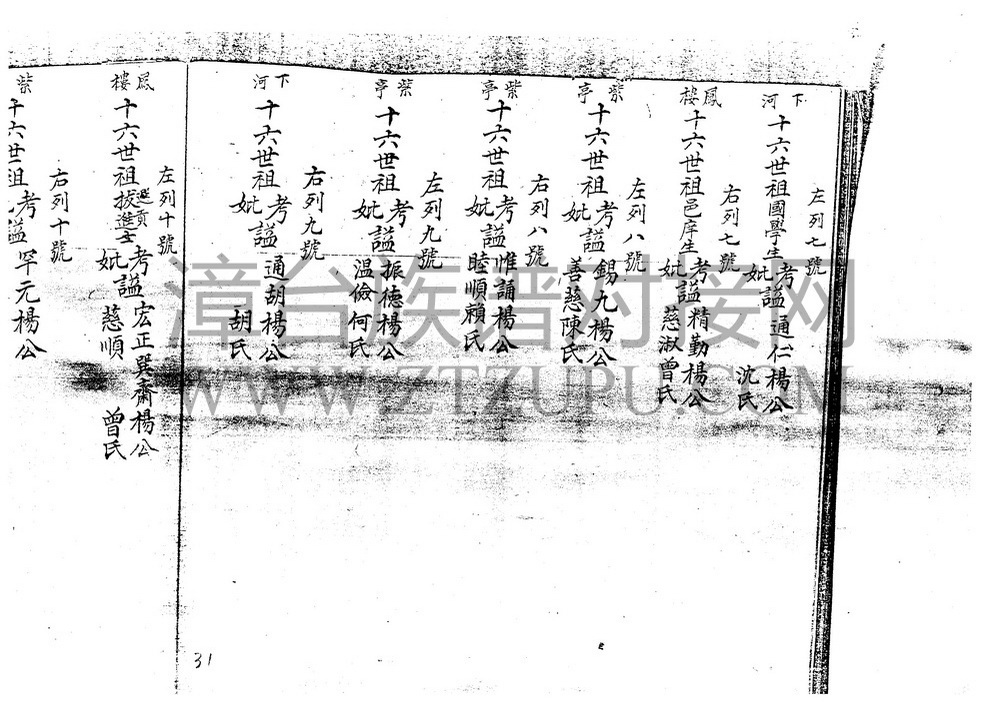 左列七號
下河
十六世祖國學生考妣謚通仁楊公沈氏
右列七號
鳳樓
十六世祖邑庠生考妣謚精勤楊公慈淑曾氏
左列八號
紫亭
十六世祖考妣謚錫九楊公善慈陳氏
右列八號
紫亭
十六世祖考妣謚惟誦楊公睦順賴氏
左列九號
紫亭
十六世祖考妣謚振德楊公温儉何氏
右列九號
下河
十六世祖考妣謚通胡楊公胡氏
左列十號
鳳樓
十六世祖選貢拔進士考妣謚宏正巽齋楊公慈順曾氏
右列十號
紫
十六世祖考謚罕元楊公
31
漳台族谱对接网
WWW.ZTZUPU.COM